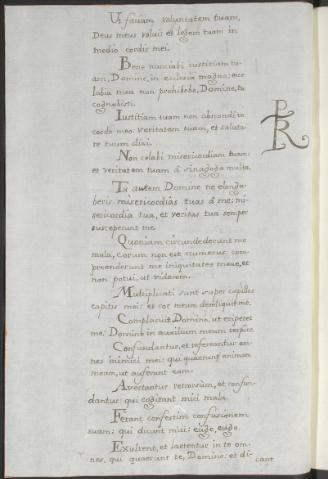 Ut faciam voluntatem tuam,
Deus meus volui: et legem tuam in
medio cordis mei.
Bene nunciabi iustitiam tu-
am, Domine, in ecclesia magna: ecce
labia mea non prohibebo, Domine, tu
cognovisti.
Iustitiam tuam non abscondi in
corde meo: veritatem tuam, et saluta-
re tuum dixi.
Non celabi misericordiam tuam:
et veritatem tuam a sinagoga multa.
Tu autem Domine ne elonga-
beris misericordias tuas a me: mi-
sericordia tua, et veritas tua semper
susceperunt me.
Quoniam circundederunt me
mala, quorum non est numerus: com-
preenderunt me iniquitates meae, et
non potui, ut viderem.
Multiplicati sunt super capillos
capitis mei: et cor meum dereliquit me.
Complaceat Domine, ut eripias
me: Domine in auxilium meum respice.
Confundantur, et rebereantur om-
nes inimici mei: qui quaerunt animam
meam, ut auferant eam.
Avertantur retrorsum, et confun-
dantur: qui cogitant mici mala.
Ferant confestim confusionem
suam: qui dicunt mici: euge, euge.
Exultent, et laetentur in te om-
nes, qui quaerunt te, Domine: et di-
cant